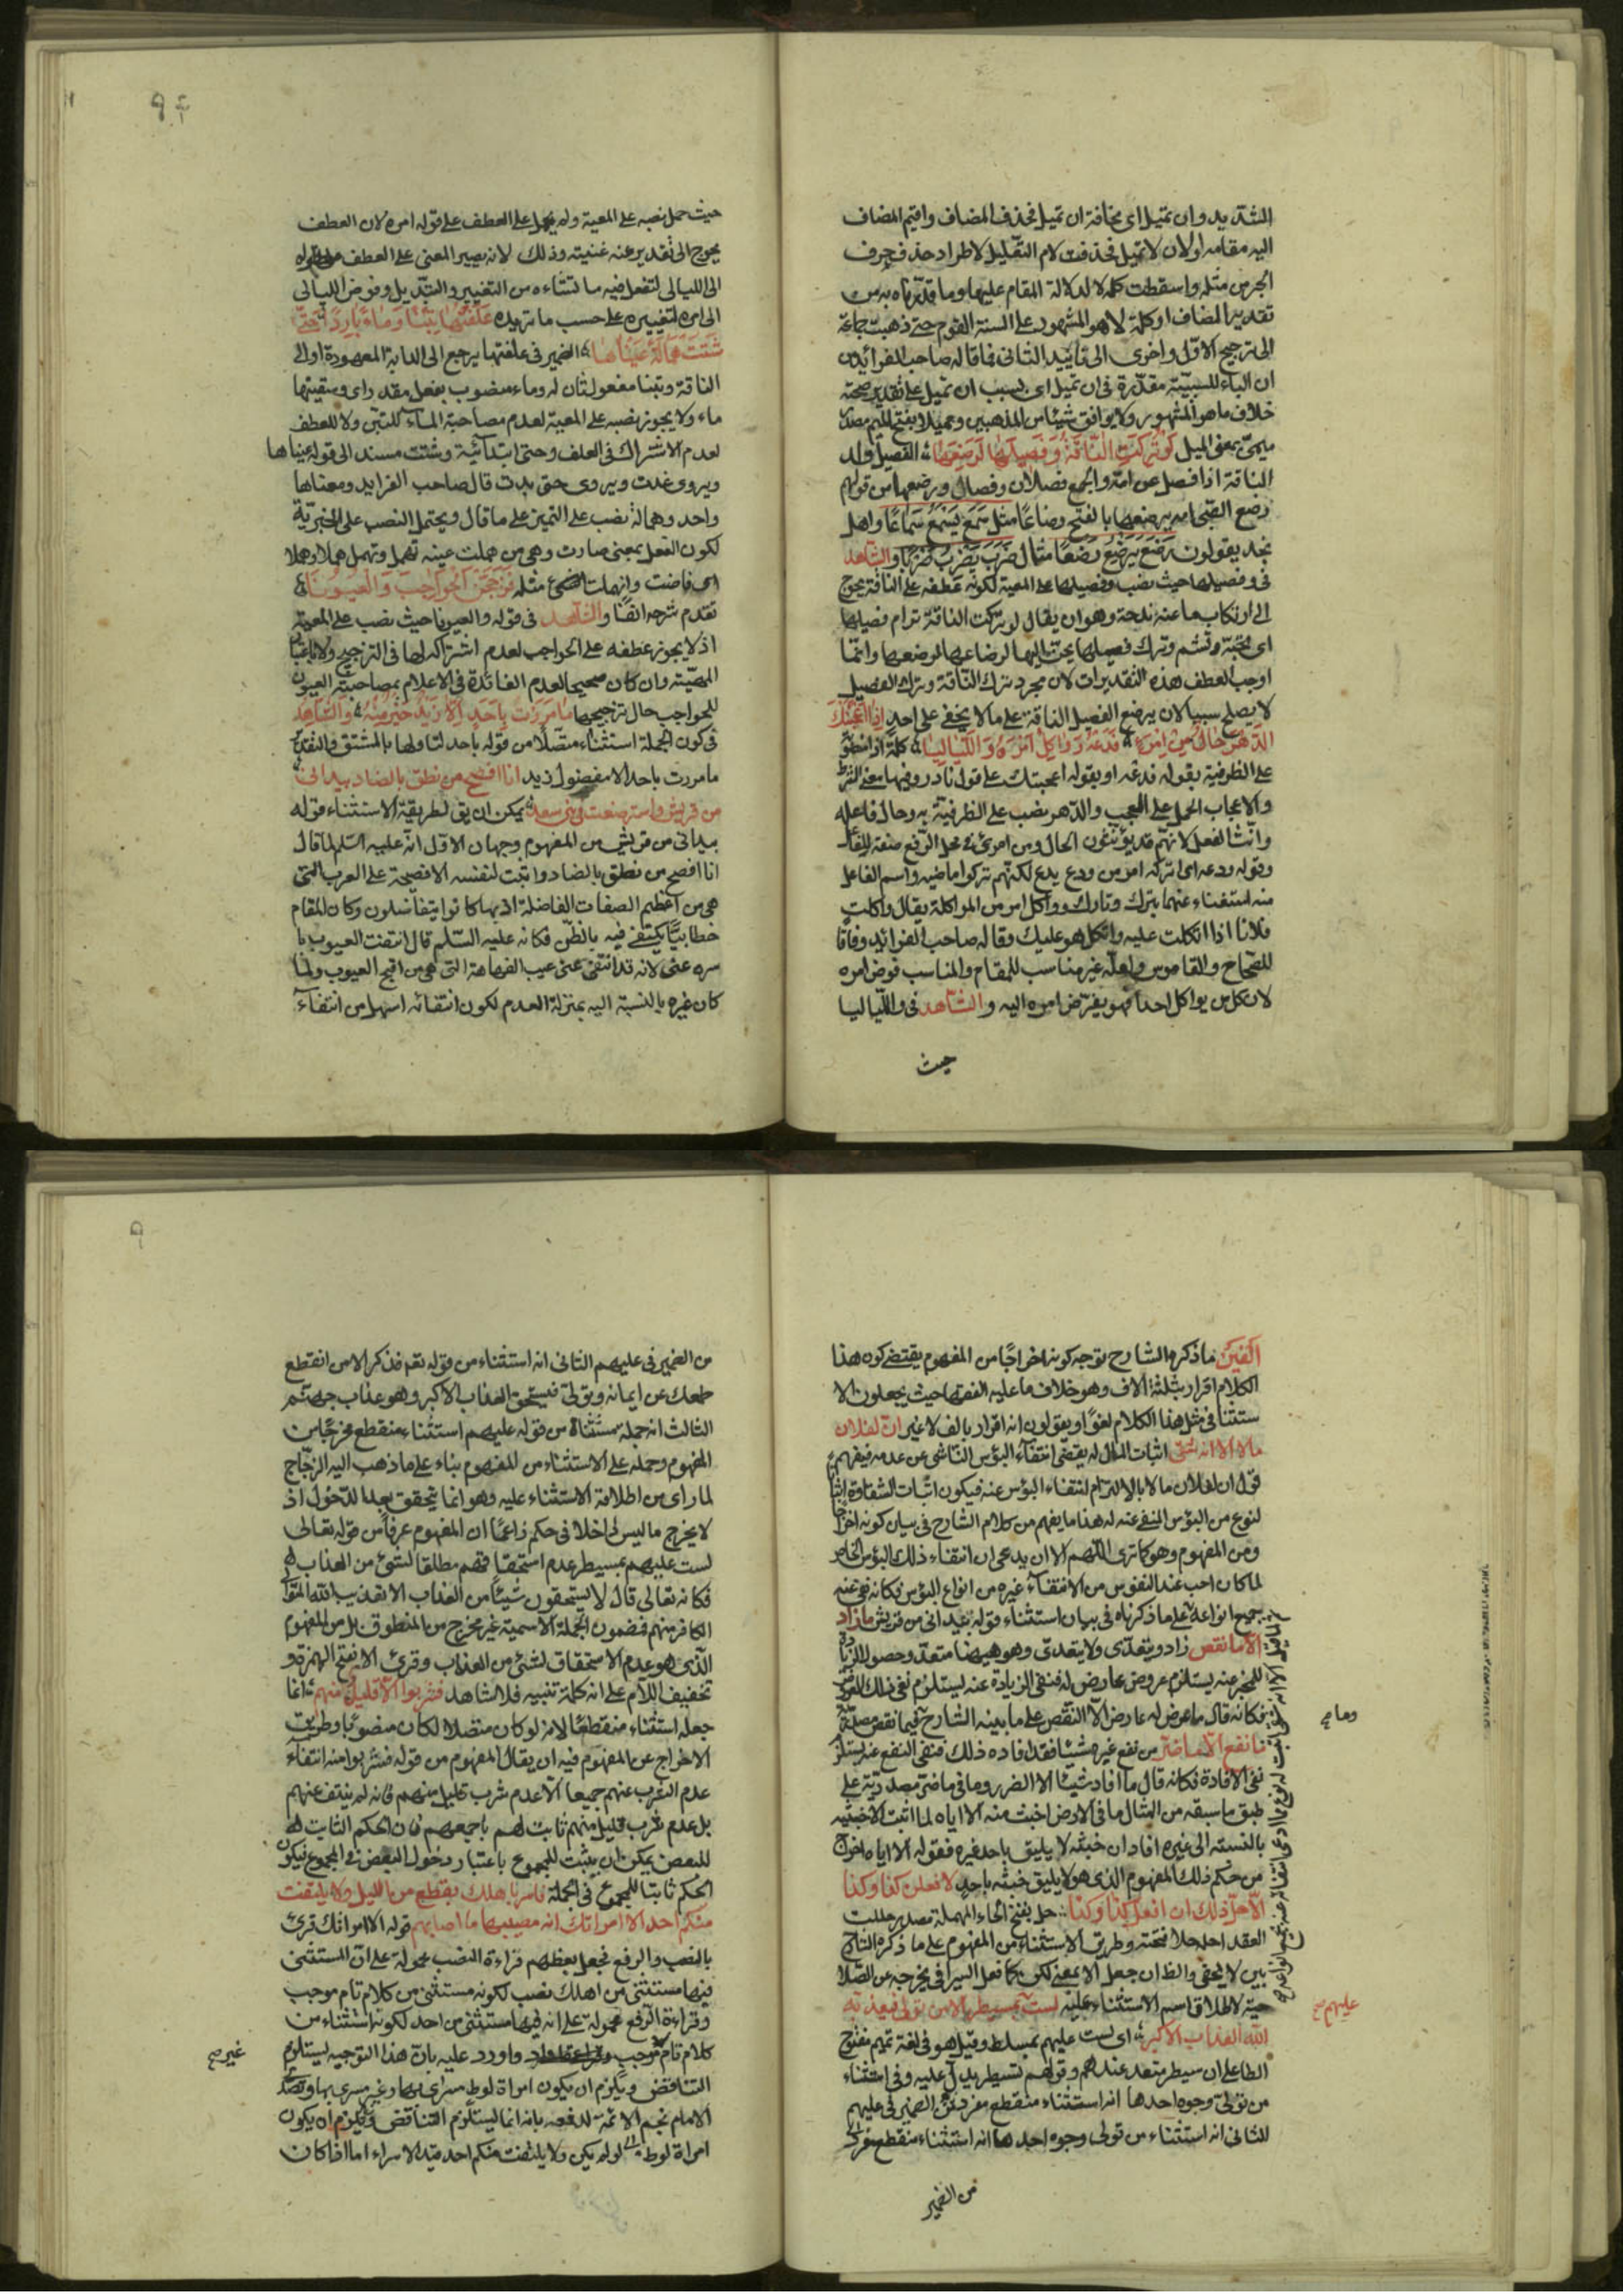 التشديد وان تميل اى مخافة ان تميل فحذف المضاف واقيم المضاف
اليه مقامه اولان لا تميل فحذفت لام التقليل لاطراد حذف حرف
الجر من مثله واسقطت كلمة لا لدلالة المقام عليها وما قدرناه به من
تقدير المضاف او كلمة لا هو المشهور على السنة القوم حتى ذهبت جماعة
الى ترجيح الاول واخرى الى تاييد الثانى فما قاله صاحب الفرائد من
ان الباء للسببية مقدرة فى ان تميل اى بسبب ان تميل على تقدير صحته
خلاف ما هو المشهور ولا يوافق شيئا من المذهبين ومميلا بفتح الميم مصدر
ميمى بمعنى الميل لو تركت الناقة وفصيلها لرضعها الفصيل ولد
الناقة اذا فصل عن امه والجمع فصلان وفصال ورضعها من قولهم
رضع الصبى امه يرضعها بالفتح رضاعا مثل سمع يسمع سماعا واهل
نجد يقولون رضع يرضع رضعا مثال ضرب يضرب ضربا والشاهد
فى وفصيلها حيث نصب وفصيلها على المعية لكونه عطفه على الناقة يحوج
الى ارتكاب ما عنه ندحة وهو ان يقال لو تركت الناقة ترام فصيلها
اى تحبة وتشم وترك فصيلها يحن اليها لرضاعها لرضعها وانما
اوجب العطف هذه التقديرات لان مجرد ترك الناقة وترك الفصيل
لا يصلح سببا لان يرضع الفصيل الناقة على ما لا يخفى على احد اذا اعجبتك
الدهر حال من امرء فدعه وواكل امره واللياليا كلمة اذا منصوب
على الظرفية بقوله فدعه او بقوله اعجبتك على قول نادر وفيها معنى الشرط
والاعجاب الحمل على العجب والدهر نصب على الظرفية به وحال فاعله
وانث الفعل لانهم قد يؤنثون الحال ومن امرئ فى محل الرفع صفة للفاعل
وقوله ودعه اى اتركه امر من ودع يدع لكنهم تركوا ماضيه واسم الفاعل
منه استغناء عنهما بترك وتارك وواكل امر من المواكلة يقال واكلت
فلانا اذا اتكلت عليه واتكل هو عليك وقاله صاحب الفرائد وفاقا
للصحاح والقاموس ولعله غير مناسب للمقام والمناسب فوض امره
لان كل من يواكل احدا فهو يفوض امره اليه والشاهد فى واللياليا
حيث
حيث حمل نصبه على المعية ولم يحمل على العطف على قوله امره لان العطف
يحوج الى تقدير عنه غنيته وذلك لانه يصير المعنى على العطف
الى الليالى لتفعل فيه ما تشاءه من التغيير والتبديل وفوض الليالى
الى امره لتغييره على حسب ما تريده علفتها تبنا وماء باردا حتى
شتت همالة عيناها الضمير فى علفتها يرجع الى الدابة المعهودة او الى
الناقة وتبنا مفعول ثان له وماء منصوب بفعل مقدر اى وسقيتها
ماء ولا يجوز نصبه على المعية لعدم مصاحبة الماء للتبن ولا للعطف
لعدم الاشتراك فى العلف وحتى ابتدائية وشتت مسند الى قوله عيناها
ويروى غدت ويروى حتى بدت قال صاحب الفرايد ومعناها
واحد وهمالة نصب على التميز على ما قال ويحتمل النصب على الخبرية
لكون الفعل بمعنى صارت وهى من هملت عينه تهمل وتهمل هملا وهملا
اى فاضت وانهملت مثله فزججن الحواجب والعيونا
تقدم شرحه انفا والشاهد فى قوله والعيونا حيث نصب على المعية
اذ لا يجوز عطفه على الحواجب لعدم اشتراكه لها فى التزجيج ولا باعتبار
المعيته وان كان صحيحا لعدم الفائدة فى الاعلام بمصاحبة العيون
للحواجب حال تزجيجها ما مررت باحد الا زيد خير منه والشاهد
فى كون الجملة استثناء متصلا من قوله باحد لتاولها بالمشتق والتقدير
ما مررت باحد الا مفضول زيد انا افصح من نطق بالضاد بيدانى
من قريش واسترضعت فى بنى سعد يمكن ان يق لطريقة الاستثناء قوله
بيدانى من قريش من المفهوم وجهان الاول انه عليه السلم لما قال
انا افصح من نطق بالضاد واثبت لنفسه الافصحية على العرب التى
هى من اعظم الصفات الفاضلة اذ بها كانوا يتفاضلون وكان المقام
خطابيا يكتفى فيه بالظن فكانه عليه السلم قال انتفت العيوب با
سره عنى لانه قد انتفى عنى عيب الفهاهة التى هى من اقبح العيوب ولما
كان غيره بالنسبة اليه بمنزلة العدم لكون انتفائه اسهل من انتفاء
الفين ما ذكره الشارح توجه كونه اخراجا من المفهوم يقتضى كون هذا
الكلام اقرار بثلثة الاف وهو خلاف ما عليه الفقهاء حيث يجعلون الا
ستثنا فى مثل هذا الكلام لغوا ويقولون انه اقرار بالف لا غير ان لفلان
مالا الا انه شقى اثبات المال له يقتضى انتفاء البؤس الناشى عن عدمه فيفهم
قول ان لفلان مالا بالالتزام انتفاء البؤس عنه فيكون اثبات الشقاوة اثباتا
لنوع من البؤس المنفى عنه له هذا ما يفهم من كلام الشارح فى بيان كونه اخراجا
ومن المفهوم وهو كما ترى اللهم الا ان يدعى ان انتفاء ذلك البؤس الخاص
لما كان احب عند النفوس من الانتفاء غيره من انواع البؤس فكانه نفى عنه
جميع انواعه على ما ذكرناه فى بيان استثناء قوله بيدانى من قريش ما زاد
الا ما نقص زاد ويتعدى ولا يتعدى وهو هيهنا متعد وحصول الزيادة
للمخبر عنه يستلزم عروض عارض له فنفى الزيادة عنه ليستلزم نفى ذلك العروض
فكانه قال ما عرض له عارض الا النقص على ما بينه الشارح فيما نقص مصدرية
ما نفع الا ما ضر من نفع غيره شيئا فقد افاده ذلك فنفى النفع عنه يستلزم
نفى الافادة فكانه قال ما افاد شيئا الا الضرر وما فى ما ضر مصدرية على
طبق ما سبقه من المثال ما فى الارض اخبث منه الا اياه لما اثبت الاخبثيه
بالنسبته الى غيره افاد ان خبثه لا يليق باحد غيره فقوله الا اياه اخراج
من حكم ذلك المفهوم الذى هو لا يليق خبثه باحد لا فعلن كذا وكذا
الا حل ذلك ان افعل كذا وكذا حل بفتح الحاء المهملة مصدر حللت
العقد احله حلا فتحته وطريق الاستثناء من المفهوم على ما ذكره الشارح
بين لا يخفى والظ ان جعل الا بمعنى لكن كما فعل السيرافى يخرجه عن الصلا
حية لاطلاق اسم الاستثناء عليه لست بمسيطر الا من تولى فيعذبه
الله العذاب الاكبر اى لست عليهم بمسلط وقيل هو فى لغة تميم مفتوح
الطا على ان سيطر متعد عندهم وقولهم تسيطر يدل عليه وفى استثناء
من تولى وجوه احدها انه استثناء منقطع مفرد من الضمير فى عليهم
للثانى انه استثناء من تولى وجوه احدها انه استثناء منقطع مفرد
من الضمير
وما صح
عليهم صح
من الضمير فى عليهم الثانى انه استثناء من قوله نعم فذكر الا من انقطع
طمعك عن ايمانه وتولى فيستحق العذاب الاكبر وهو عذاب جهنم
الثالث انه جملة مستثناة من قوله عليهم استثناء منقطع مخرجا من
المفهوم وحمله على الاستثناء من المفهوم بناء على ما ذهب اليه الزجاج
لما راى من اطلاقه الاستثناء عليه وهو انما يتحقق بعد الدخول اذ
لا يخرج ما ليس داخلا فى حكم زاعما ان المفهوم عرفا من قوله تعالى
لست عليهم بمسيطر عدم استحقاقهم مطلقا لشئ من العذاب
فكانه تعالى قال لا يستحقون شيئا من العذاب الا تعذيب الله
الكافر منهم فمضمون الجملة الاسمية غير مخرج من المنطوق بل من المفهوم
الذى هو عدم الاستحقاق لشئ من العذاب وقرئ الا بفتح الهمزة و
تخفيف اللام على انه كلمة تنبيه فلا شاهد فشربوا الا قليل منهم انما
جعله استثناء منقطعا لانه لو كان متصلا لكان منصوبا وطريق
الاخراج عن المفهوم فيه ان يقال المفهوم من قوله فشربوا منه انتفاء
عدم الشرب عنهم جميعا الا عدم شرب قليل منهم فانه لم ينتف عنهم
بل عدم شرب قليل منهم ثابت لهم باجمعهم فان الحكم الثابت
للبعض يمكن ان يثبت للمجموع باعتبار دخول البعض فى المجموع فيكون
الحكم ثابتا للمجموع فى الجملة فاسر باهلك بقطع من الليل ولا يلتفت
منكم احد الا امراتك انه مصيبها ما اصابهم قوله الا امراتك قرئ
بالنصب والرفع فجعل بعظهم قراءة النصب محمولة على ان المستثنى
فيها مستثنى من اهلك نصب لكونه مستثنى من كلام تام موجب
وقراءة الرفع محمولة على انه فيها مستثنى من احد لكونه استثناء من
كلام تام موجب واورد عليه بان هذا التوجيه ليستلزم
غير صح
التناقض ويلزم ان يكون امراة لوط مسرى بها وغير مسرى بها وتصدى
الامام نجم الائمة لدفعه بانه انما ليستلزم التناقض ويلزم ان يكون
امراة لوط لو لم يكن ولا يلتفت منكم احد قيد الاسراء اما اذا كان